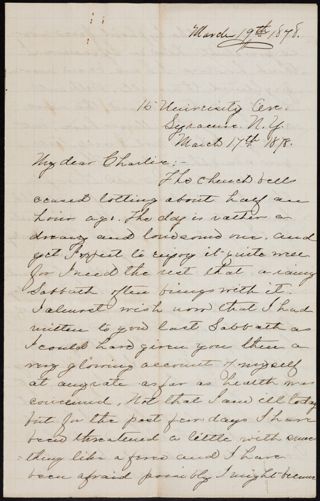 March 19th 1878.
16 University Ave.
Syracuse. N.Y.
March 17th 1878.
My dear Charlie:-
The church bells
ceased tolling about half an
hour ago. The day is rather a
dreary and lonesome one, and
yet I expect to enjoy it quite well
for I need the rest that a rainy
Sabbath often brings with it.
I almost wish now that I had
written to you last Sabbath as
I could have given you then a
very glowing account of myself
at any rate as far as health was
concerned. Not that I am ill today
but for the past few days I have
been threatened a little with some
thing like a fever and I have
been afraid possibly I might become